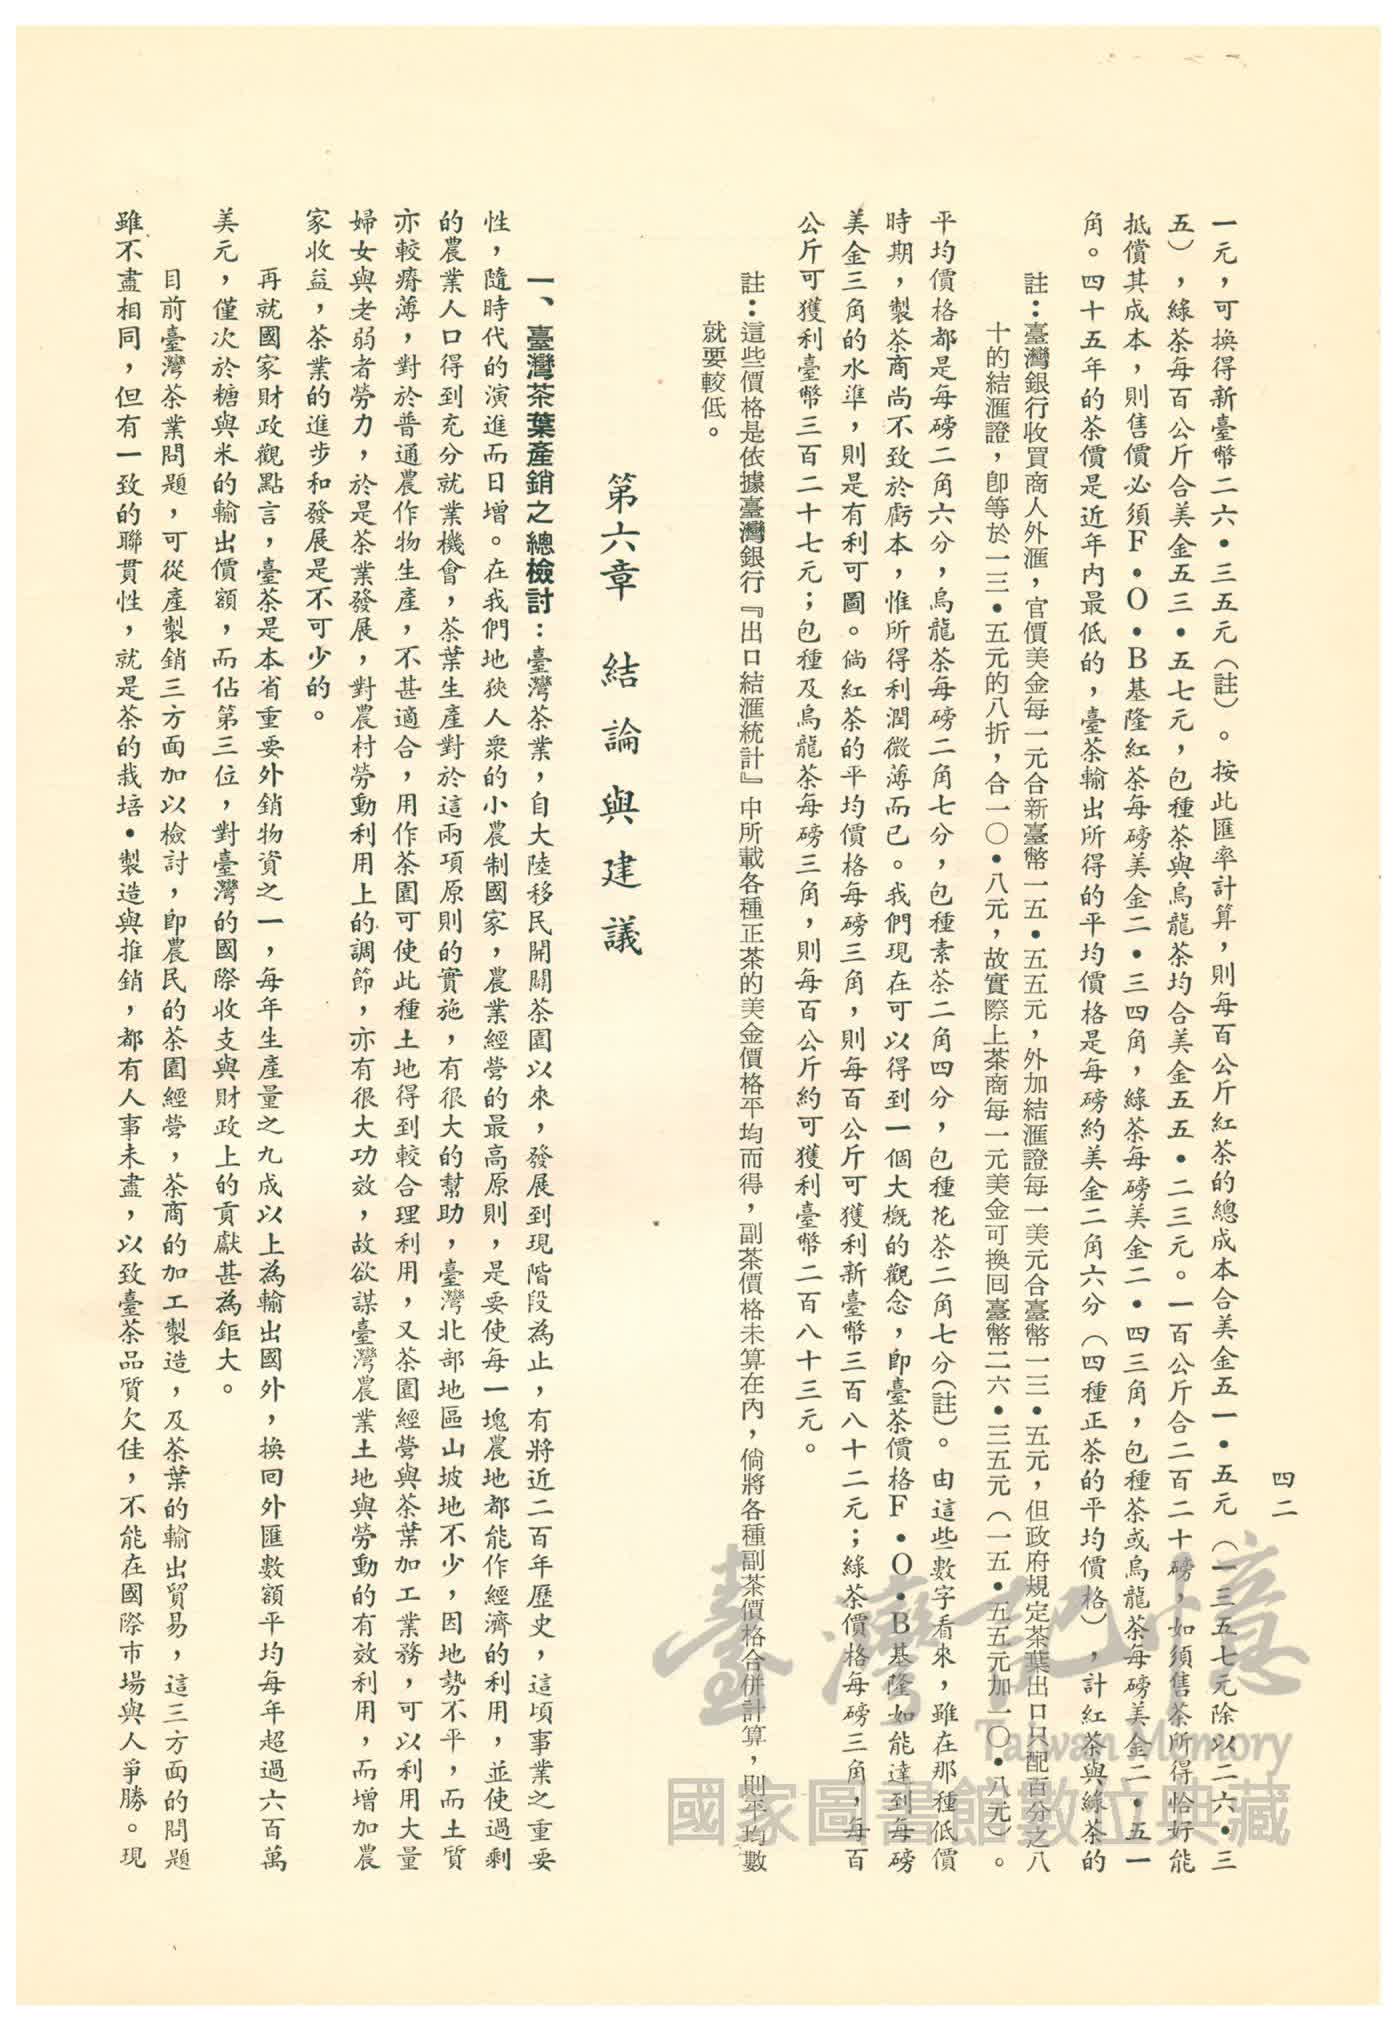 四二
一元，可換得新臺幣二六•三五元（註）。按此匯率計算，則每百公斤紅茶的總成本合美金五一•五元（一三五七元除以二六•三
五），綠茶每百公斤合美金五三•五七元，包種茶與烏龍茶均合美金五五•二三元。一百公斤合二百二十磅，如須售茶所得恰好能
抵償其成本，則售價必須F•O•B基隆紅茶每磅美金二•三四角，綠茶每磅美金二•四三角，包種茶或烏龍茶每磅美金二•五一
角。四十五年的茶價是近年內最低的，臺茶輸出所得的平均價格是每磅約美金二角六分（四種正茶的平均價格），計紅茶與綠茶的
註：臺灣銀行收買商人外滙，官價美金每一元合新臺幣一五•五五元，外加結滙證每一美元合臺幣一三•五元，但政府規定茶葉出口只配百分之八
十的結滙證，卽等於一三•五元的八折，合一〇•八元，故實際上茶商每一元美金可換囘臺幣二六•三五元（一五•五五元加一〇•八元）。
平均價格都是每磅二角六分，烏龍茶每磅二角七分，包種素茶二角四分，包種花茶二角七分（註）。由這些數字看來，雖在那種低價
時期，製茶商尚不致於虧本，惟所得利潤微薄而已。我們現在可以得到一個大概的觀念，卽臺茶價格F•O•B基隆如能達到每磅
美金三角的水準，則是有利可圖。倘紅茶的平均價格每磅三角，則每百公斤可獲利新臺幣三百八十二元；綠茶價格每磅三角，每百
公斤可獲利臺幣三百二十七元；包種及烏龍茶每磅三角，則每百公斤約可獲利臺幣二百八十三元。
註：這些價格是依據臺灣銀行『出口結滙統計』中所載各種正茶的美金價格平均而得，副茶價格未算在內，倘將各種副茶價格合併計算，則平均數
就要較低。
第六章　結論與建議
一、臺灣茶葉產銷之總檢討：臺灣茶業，自大陸移民開闢茶園以來，發展到現階段為止，有將近二百年歷史，這項事業之重要
性，隨時代的演進而日增。在我們地狹人衆的小農制國家，農業經營的最高原則，是要使每一塊農地都能作經濟的利用，並使過剩
的農業人口得到充分就業機會，茶葉生產對於這兩項原則的實施，有很大的幫助，臺灣北部地區山坡地不少，因地勢不平，而土質
亦較瘠薄，對於普通農作物生產，不甚適合，用作茶園可使此種土地得到較合理利用，又茶園經營與茶葉加工業務，可以利用大量
婦女與老弱者勞力，於是茶業發展，對農村勞動利用上的調節，亦有很大功效，故欲謀臺灣農業土地與勞動的有效利用，而增加農
家收益，茶業的進步和發展是不可少的。
再就國家財政觀點言，臺茶是本省重要外銷物資之一，每年生產量之九成以上為輸出國外，換回外匯數額平均每年超過六百萬
美元，僅次於糖與米的輸出價額，而佔第三位，對臺灣的國際收支與財政上的貢獻甚為鉅大。
目前臺灣茶業問題，可從產製銷三方面加以檢討，卽農民的茶園經營，茶商的加工製造，及茶葉的輸出貿易，這三方面的問題
雖不盡相同，但有一致的聯貫性，就是茶的栽培•製造與推銷，都有人事未盡，以致臺茶品質欠佳，不能在國際市場與人爭勝。現
臺灣記憶
Taiwan Memory
國家圖書館數位典藏